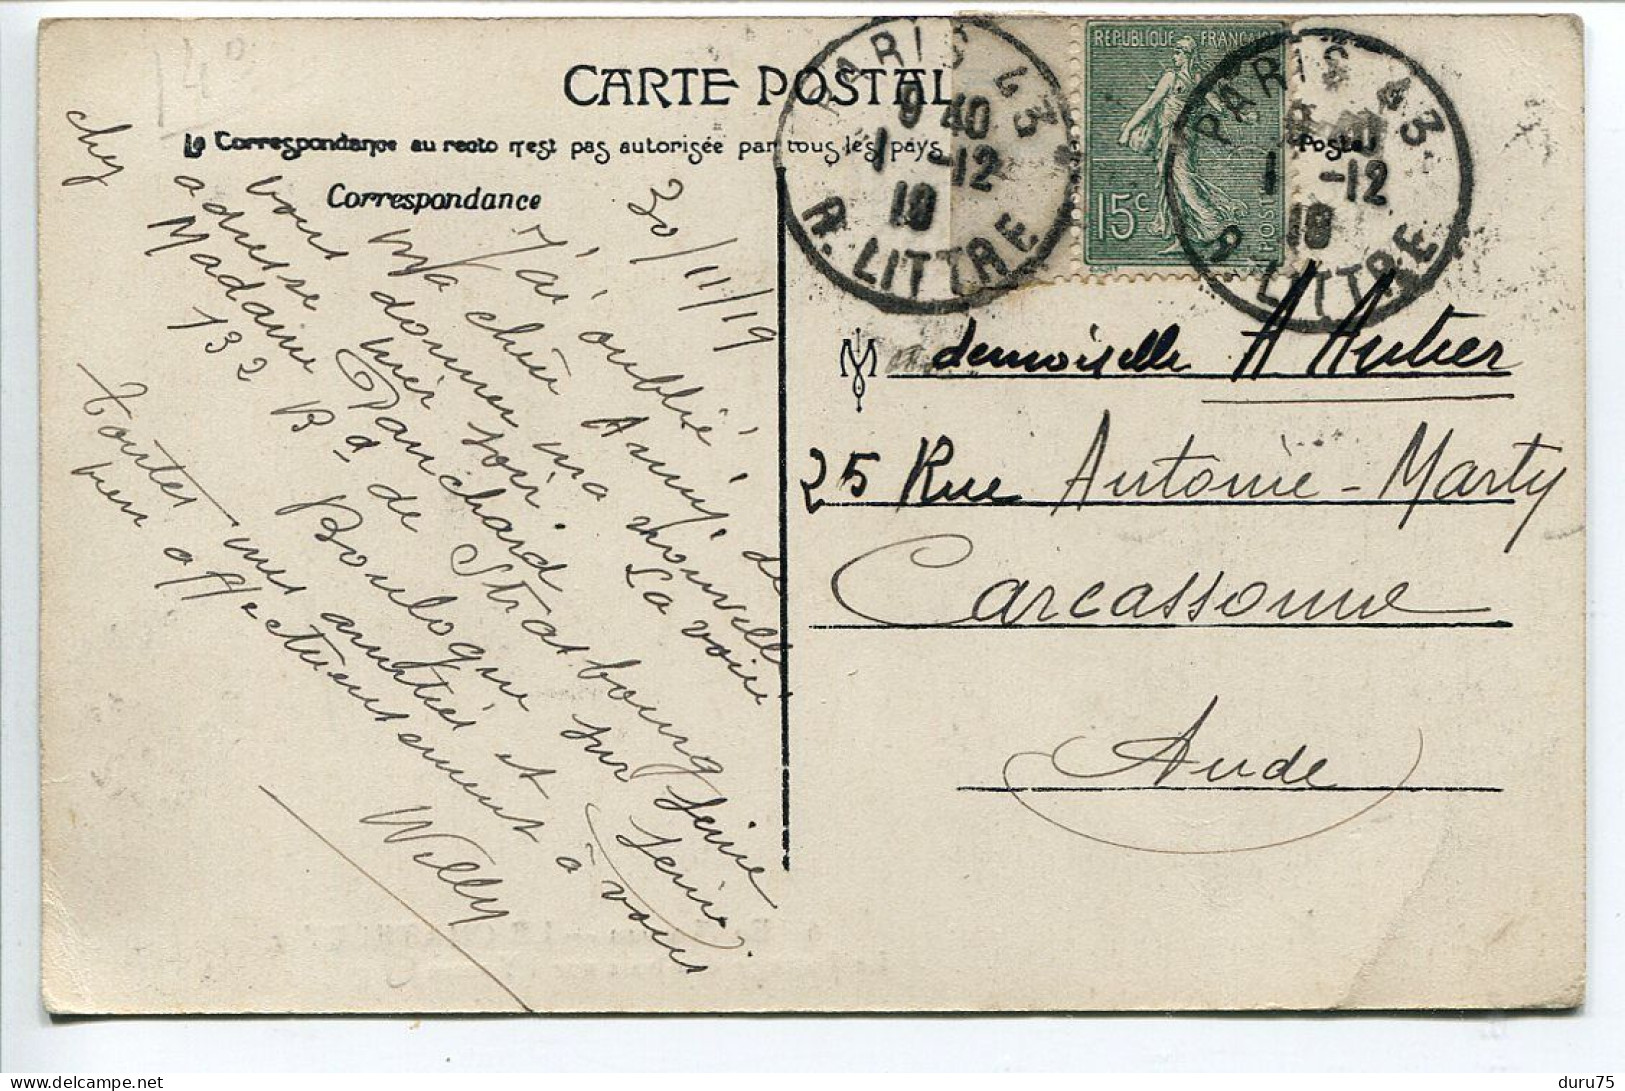 14°
CARTE POSTAL
La Correspondance au recto n'est pas autorisée par tous les pays
Poste
Correspondance
30/11/19
Ma chère Amy,
J'ai oublié de
vous donner ma nouvelle
adresse hier soir. La voici
chez Madame Panchard
132 Bd de Strasbourg
Boulogne sur Seine
Seine.
Toutes mes amitiés et
bien affectueusement à vous
Willy
PARIS 43
9 40
1 -12
19
R. LITTRE
REPUBLIQUE FRANÇAISE
15c
POSTES
PARIS 43
1 -12
19
R. LITTRE
M demoiselle A Autier
25 Rue Antoine-Marty
Carcassonne
Aude
delcampe.net
duru75